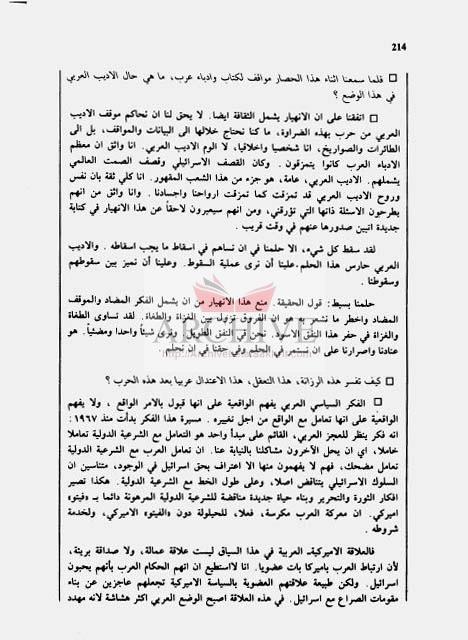 214
□ قلما سمعنا اثناء هذا الحصار مواقف لكتاب وادباء عرب، ما هي حال الاديب العربي
في هذا الوضع ؟
□ اتفقنا على ان الانهيار يشمل الثقافة ايضا. لا يحق لنا ان نحاكم موقف الاديب
العربي من حرب بهذه الضراوة، ما كنا نحتاج خلالها الى البيانات والمواقف، بل الى
الطائرات والصواريخ، انا شخصيا واخلاقيا، لا الوم الاديب العربي. انا واثق ان معظم
الادباء العرب كانوا يتمزقون. وكان القصف الاسرائيلي وقصف الصمت العالمي
يشملهم. الاديب العربي، عامة، هو جزء من هذا الشعب المقهور. انا كلي ثقة بان نفس
وروح الاديب العربي قد تمزقت كما تمزقت ارواحنا واجسادنا. وانا واثق من انهم
يطرحون الاسئلة ذاتها التي تؤرقني، ومن انهم سيعبرون لاحقاً عن هذا الانهيار في كتابة
جديدة اتبين صدورها عنهم في وقت قريب.
لقد سقط كل شيء، الا حلمنا في ان نساهم في اسقاط ما يجب اسقاطه. والاديب
العربي حارس هذا الحلم. علينا أن نرى عملية السقوط. وعلينا أن نميز بين سقوطهم
وسقوطنا.
حلمنا بسيط: قول الحقيقة. منع هذا الانهيار من ان يشمل الفكر المضاد والموقف
المضاد واخطر ما نشعر به هو ان الفروق تزول بين الغزاة والطغاة. لقد تساوى الطغاة
والغزاة في حفر هذا النفق الاسود. نحن في النفق الطويل ونرى شيئاً واحدا ومضئياً. هو
عنادنا واصرارنا على ان نستمر في الحلم وفي حقنا في ان نحلم.
ARCHIVE
□ كيف تفسر هذه الرزانة، هذا التعقل، هذا الاعتدال عربيا بعد هذه الحرب ؟
□ الفكر السياسي العربي يفهم الواقعية على انها قبول بالامر الواقع، ولا يفهم
الواقعية على انها تعامل مع الواقع من اجل تغييره. مسيرة هذا الفكر بدأت منذ ١٩٦٧:
انه فكر ينظر للعجز العربي، القائم على مبدأ واحد هو التعامل مع الشرعية الدولية تعاملا
خاملا، اي ان يحل الآخرون مشاكلنا بالنيابة عنا. ان تعامل العرب مع الشرعية الدولية
تعامل مضحك، فهم لا يفهمون منها الا اعتراف بحق اسرائيل في الوجود، متناسين ان
السلوك الاسرائيلي يتناقض اصلا، وعلى طول الخط مع الشرعية الدولية. هكذا تصير
افكار الثورة والتحرير وبناء حياة جديدة مناقضة للشرعية الدولية المرهونة دائما بـ «فيتو»
اميركي. ان معركة العرب مكرسة، فعلا، للحيلولة دون «الفيتو» الاميركي، ولخدمة
شروطه.
فالعلاقة الاميركيةـ العربية في هذا السياق ليست علاقة عمالة، ولا صداقة بريئة،
لأن ارتباط العرب باميركا بات عضويا. انا لااستطيع ان اتهم الحكام العرب بأنهم يحبون
اسرائيل. ولكن طبيعة علاقتهم العضوية بالسياسة الاميركية تجعلهم عاجزين عن بناء
مقومات الصراع مع اسرائيل. في هذه العلاقة اصبح الوضع العربي اكثر هشاشة لانه مهدد